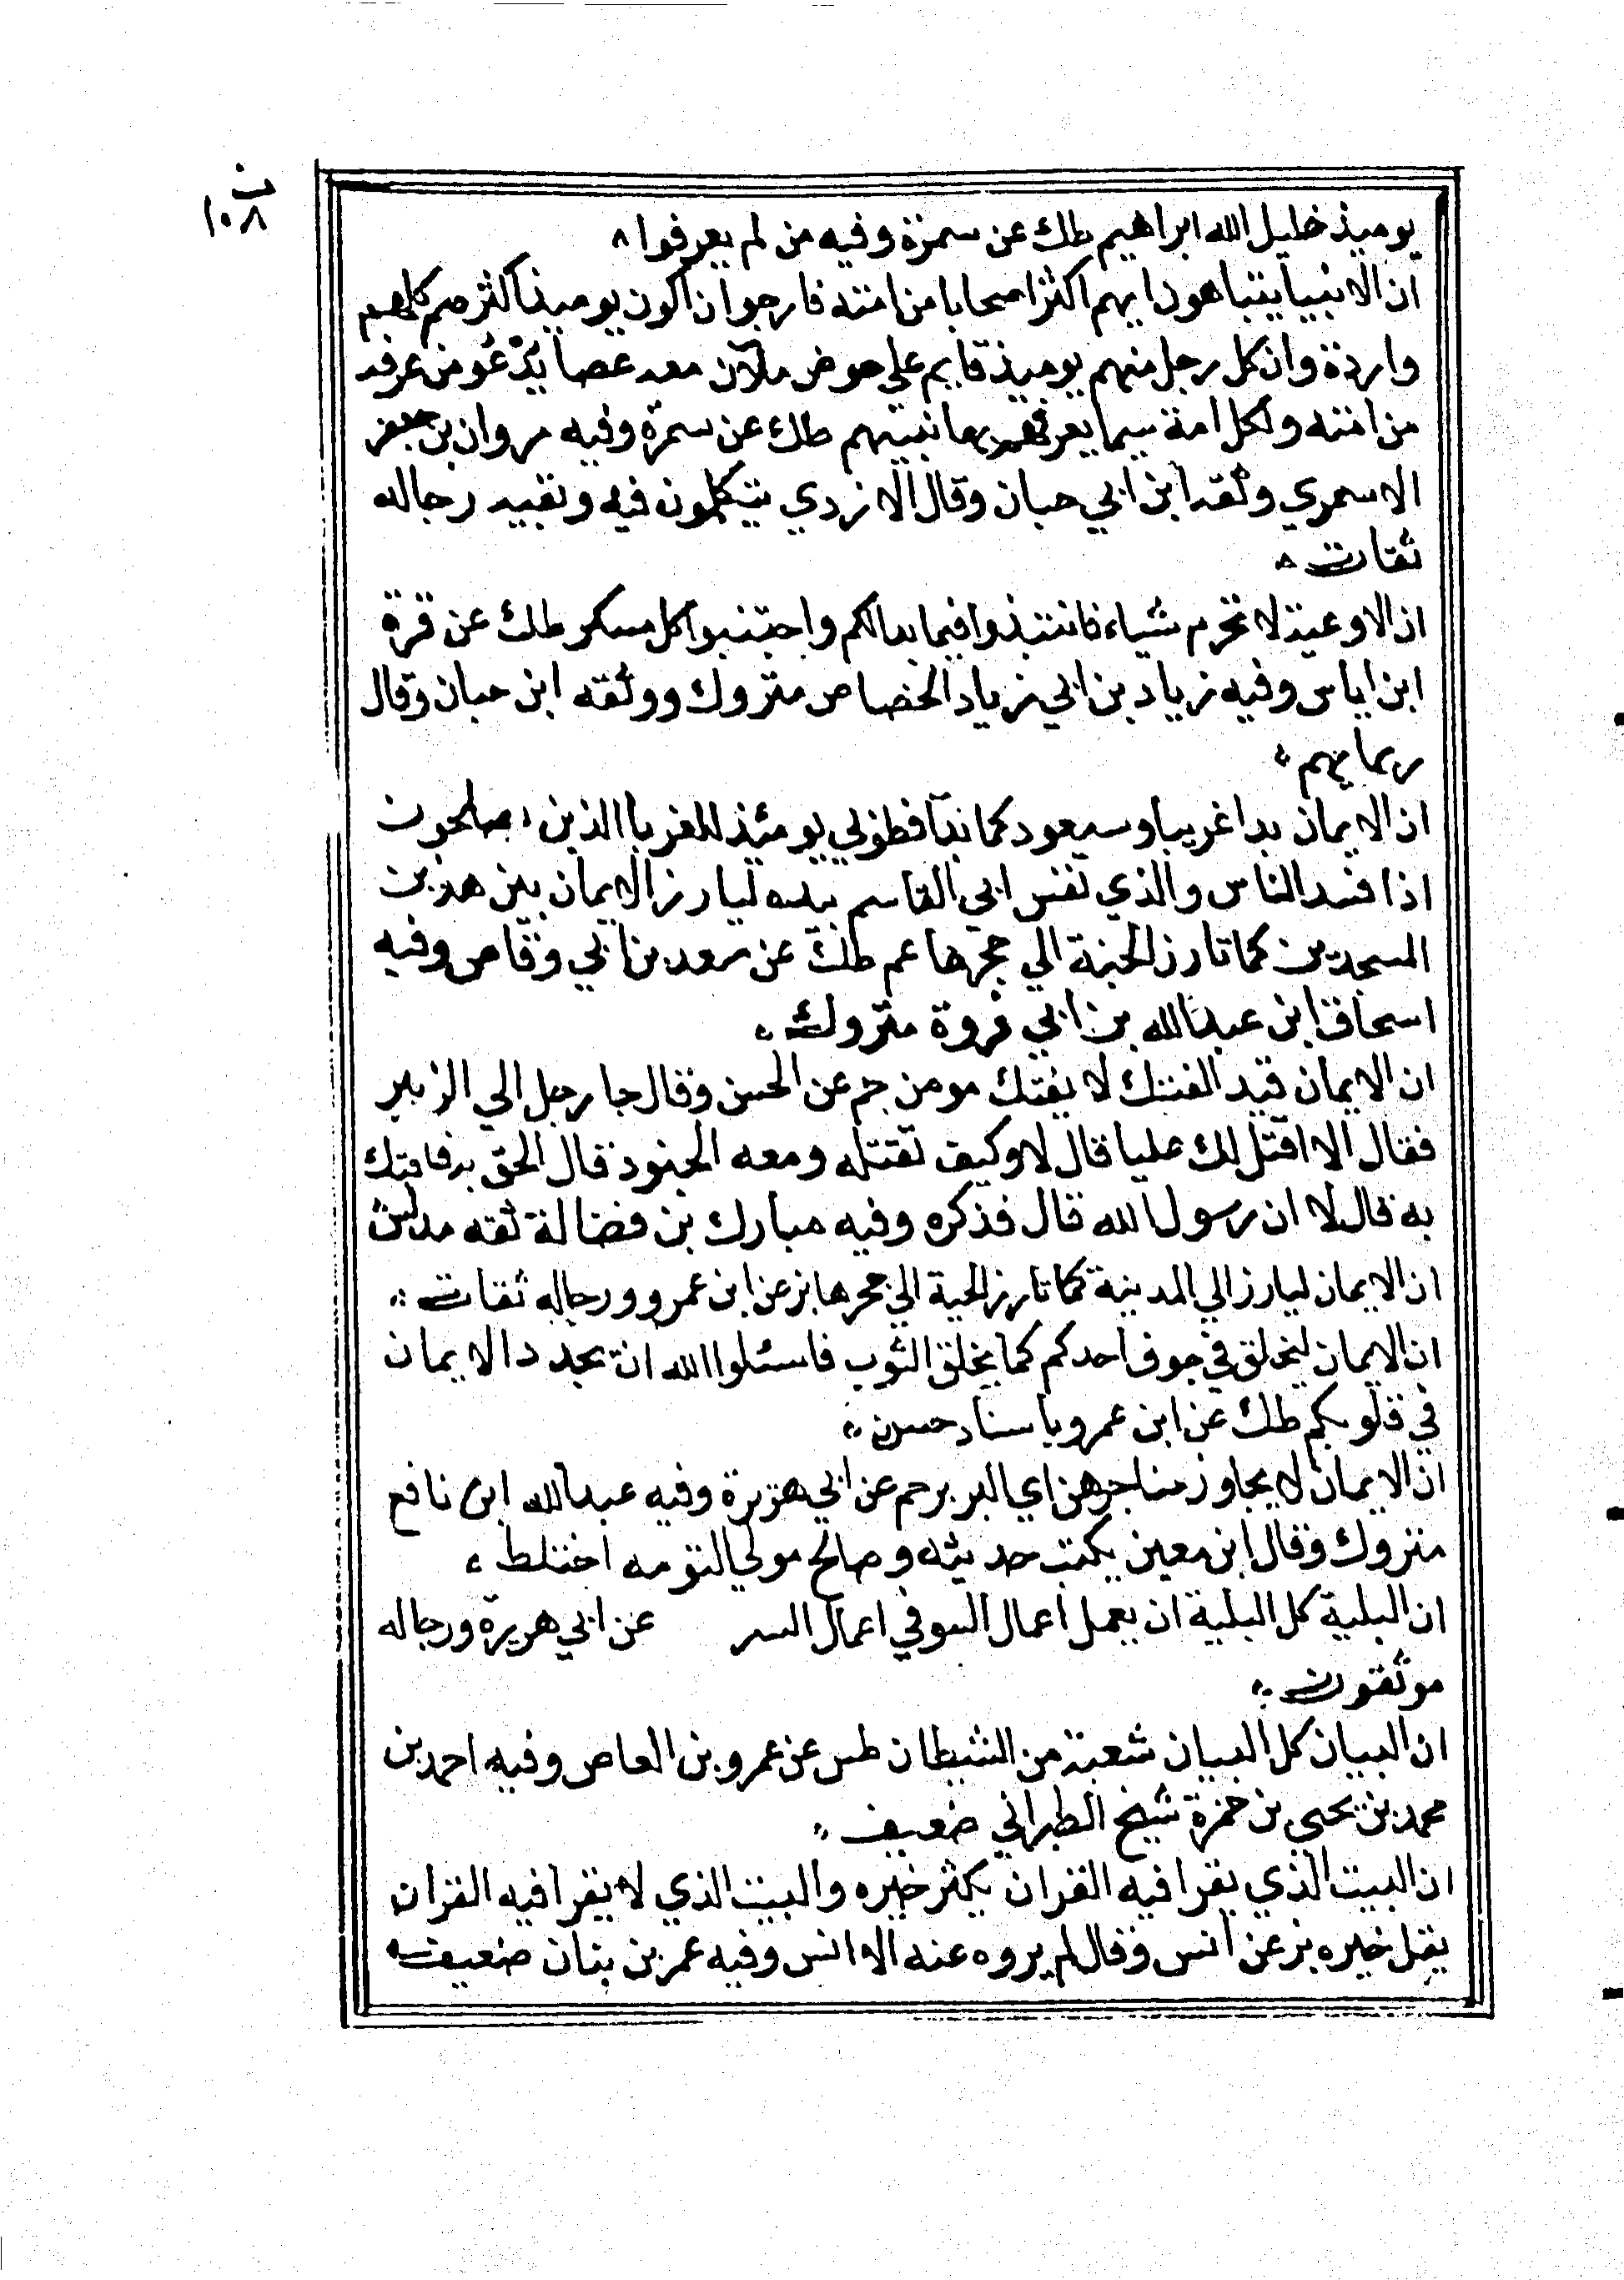 ت
١٠٨
يوميذ خليل الله ابراهيم طك عن سمرة وفيه من لم يعرفوا
ان الانبيا يتباهون ايهم اكثر اصحابا من امته فارجوا ان اكون يوميذ اكثرهم كلهم
واردة وان كل رجل منهم يوميذ قايم علي حوض ملآن معه عصا يدعو من عرف
من امته ولكل امة سيما يعرفهم بها نبيهم طك عن سمرة وفيه مروان بن جعفر
الاسمري وثقه ابن ابي حبان وقال الازدي يتكلمون فيه وبقيه رجاله
ثقات
ان الاوعية لا تحرم شياء فانتبذوا فيما بدالكم واجتنبوا كل مسكر طك عن قرة
ابن اياس وفيه زياد بن ابي زياد الخصاص متروك ووثقه ابن حبان وقال
ربما يهم
ان الايمان بدا غريبا وسيعود كما بدآ فطوبي يومئذ للغربا الذين يصلحون
اذا فسد الناس والذي نفس ابي القاسم بيده ليارز الايمان بين هذين
المسجدين كما تارز الحية الي جحرها عم طك عن سعد بن ابي وقاص وفيه
اسحاق ابن عبد الله بن ابي فروة متروك
ان الايمان قيد الفتك لا يفتك مومن حم عن الحسن وقال جا رجل الي الزبير
فقال الا اقتل لك عليا قال لا وكيف تقتله ومعه الجنود قال الحق به فافتك
به قال لا ان رسول الله قال فذكره وفيه مبارك بن فضالة ثقه مدلس
ان الايمان ليارز الي المدينة كما تارز الحية الي جحرها بز عن ابن عمرو ورجاله ثقات
ان الايمان ليخلق في جوف احدكم كما يخلق الثوب فاسئلوا الله ان يجدد الايمان
في قلوبكم طك عن ابن عمرو باسناد حسن
ان الايمان لا يجاوز حناجرهن اي البربر حم عن ابي هريرة وفيه عبد الله ابن نافع
متروك وقال ابن معين يكتب حديثه وصالح مولي التومه اختلط
ان البلية كل البلية ان يعمل اعمال السو في اعمال السر عن ابي هريرة ورجاله
موثقون
ان البيان كل البيان شعبة من الشيطان طس عن عمرو بن العاص وفيه احمد بن
محمد بن يحيي بن حمزة شيخ الطبراني ضعيف
ان البيت الذي يقرا فيه القران يكثر خيره والبيت الذي لا يقرا فيه القران
يقل خيره بز عن انس وقال لم يروه عنه الا انس وفيه عمر بن بنان ضعيف